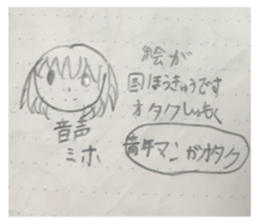 絵が
国ぼうきゅうです
オタクしつもく
音声
ミホ
青年マンガオタク